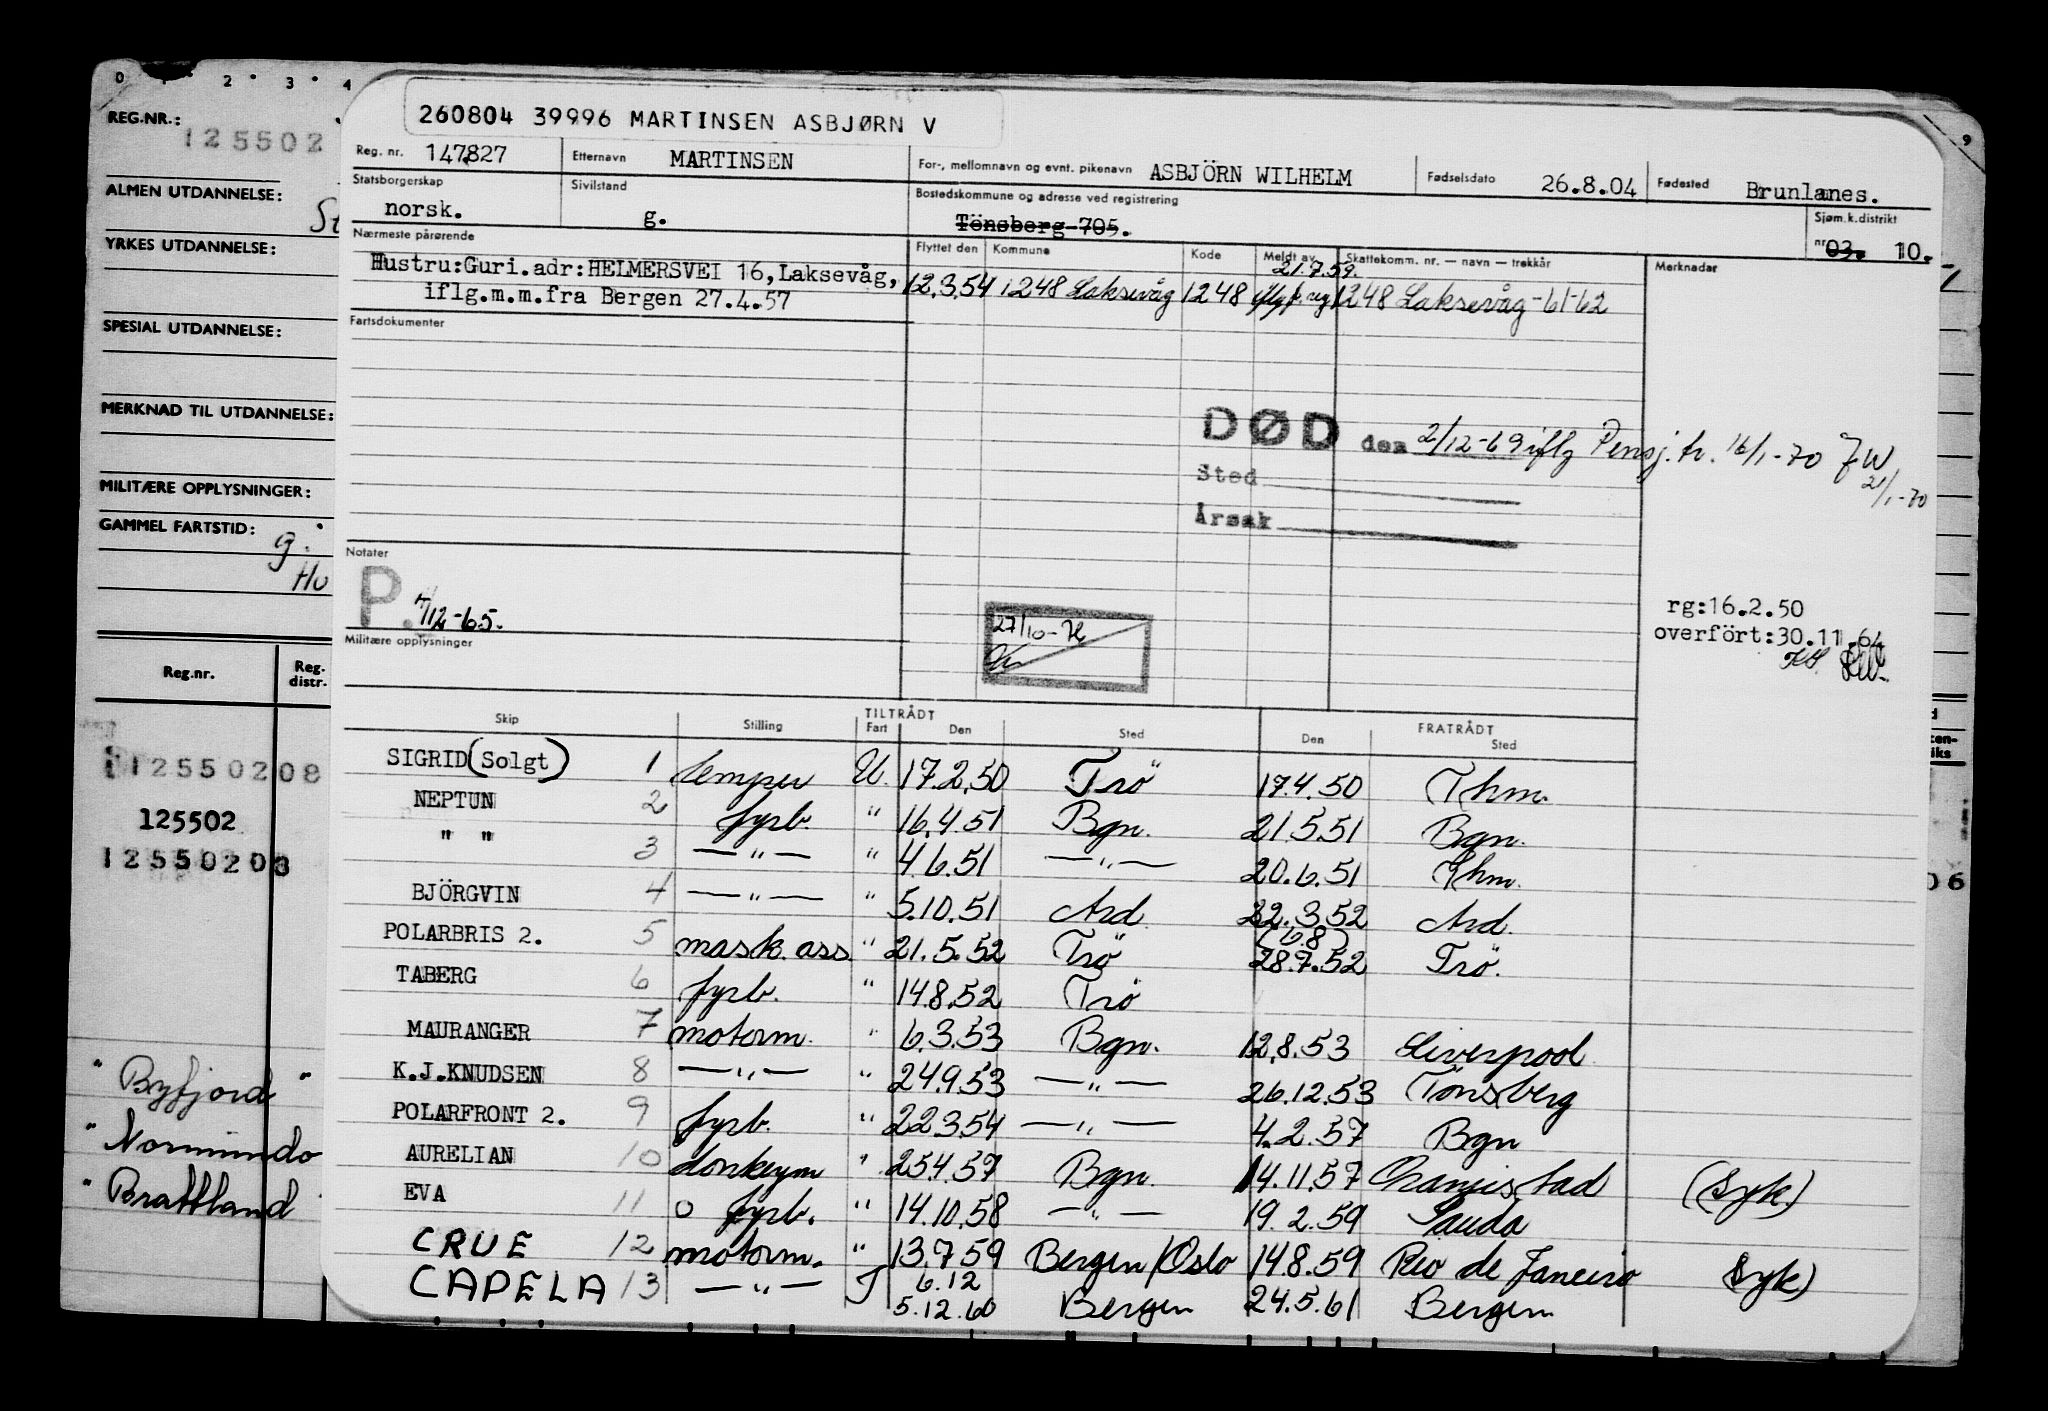 0 1 2 3 4
9
REG.NR.:
125502
ALMEN UTDANNELSE:
YRKES UTDANNELSE:
SPESIAL UTDANNELSE:
MERKNAD TIL UTDANNELSE:
MILITÆRE OPPLYSNINGER:
GAMMEL FARTSTID:
Reg.nr. Reg. distr.
12550208
125502
12550208
06
"Byfjord"
"Normindo
"Brattland
260804 39996 MARTINSEN ASBJØRN V
Reg. nr. 147827 Etternavn MARTINSEN For-, mellomnavn og evnt. pikenavn ASBJÖRN WILHELM Fødselsdato 26.8.04 Fødested Brunlanes.
Statsborgerskap norsk. Sivilstand g. Bostedskommune og adresse ved registrering Tönsberg 705. Sjøm.k.distrikt nr. 03. 10.
Nærmeste pårørende Flyttet den Kommune Kode Meldt av Skattekomm. nr. — navn — trekkår Merknader
Hustru:Guri.adr:HELMERSVEI 16,Laksevåg, 21.7.59.
iflg.m.m.fra Bergen 27.4.57 12.3.54 1248 Laksevåg 1248 iflg f. reg 1248 Laksevåg -61-62
Fartsdokumenter
DØD den 2/12-69 iflg Pensj.tr. 16/1-70 JW
21/1-70
Sted
Årsak
Notater
P. 7/12-65.
27/10-72
rg:16.2.50
overfört:30.11.64
Militære opplysninger
Skip Stilling TILTRÅDT Fart Den Sted FRATRÅDT Den Sted
SIGRID (Solgt) 1 lemper U. 17.2.50 Trö 17.4.50 Thm.
NEPTUN 2 fyrb. " 16.4.51 Bgn. 21.5.51 Bgn.
" " 3 — " — " 4.6.51 — " — 20.6.51 Thm.
BJÖRGVIN 4 — " — " 5.10.51 Ard 22.3.52 Ard.
POLARBRIS 2. 5 mask.ass " 21.5.52 Trö (6.8) 28.7.52 Trö.
TABERG 6 fyrb. " 14.8.52 Trö
MAURANGER 7 motorm. " 6.3.53 Bgn. 12.8.53 Liverpool
K.J.KNUDSEN 8 — " — " 24.9.53 — " — 26.12.53 Tönsberg
POLARFRONT 2. 9 fyrb. " 22.3.54 — " — 4.2.57 Bgn
AURELIAN 10 donkeym " 25.4.57 Bgn. 14.11.57 Oranjestad (Syk)
EVA 11 o fyrb. " 14.10.58 — " — 19.2.59 Sauda
CRUE 12 motorm. " 13.7.59 Bergen/Oslo 14.8.59 Rio de Janeiro Syk)
CAPELA 13 — " — J 6.12
5.12.60 Bergen 24.5.61 Bergen